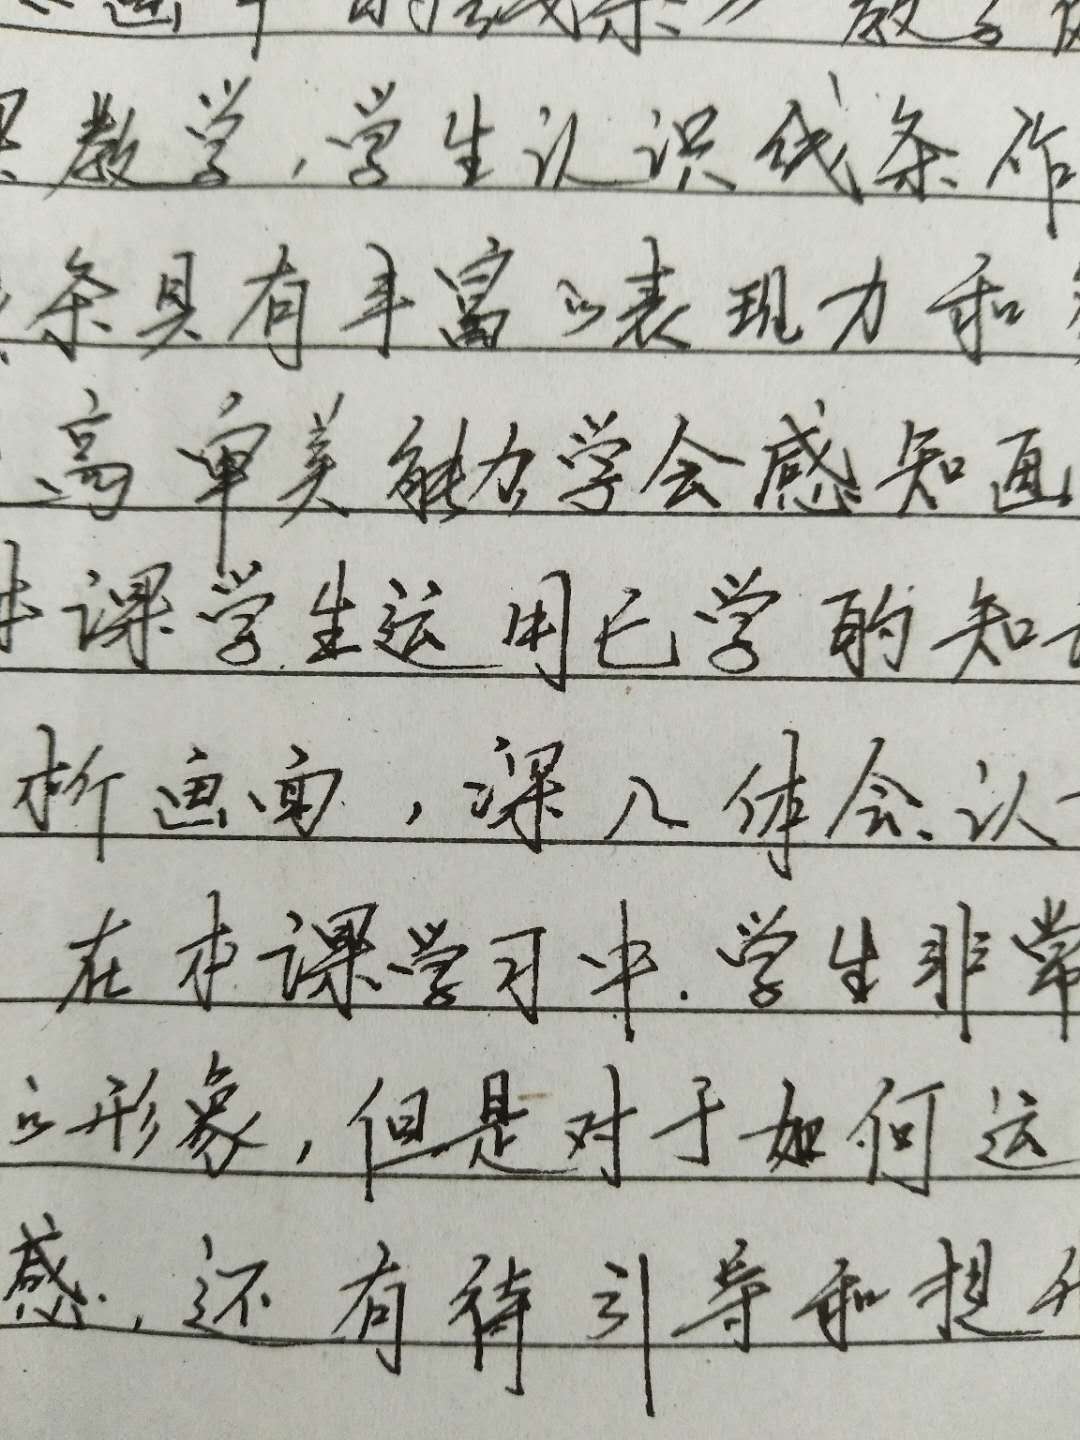 画中的线条》教
教学，学生认识线条作
条具有丰富的表现力和
高审美能力学会感知画
本课学生运用已学的知识
析画面，深入体会、认
在本课学习中.学生非常
的形象，但是对于如何运
感，还有待引导和提升